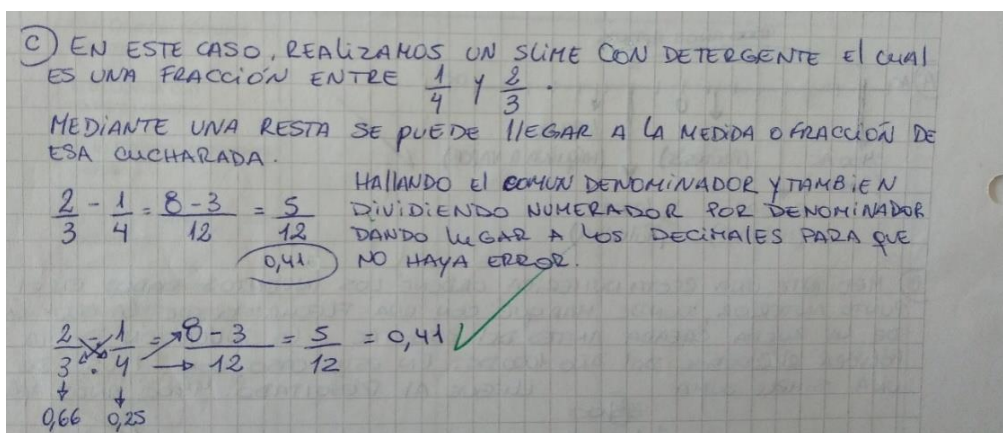 C) EN ESTE CASO, REALIZAMOS UN SLIME CON DETERGENTE El CUAL
ES UNA FRACCIÓN ENTRE 1/4 Y 2/3.
MEDIANTE UNA RESTA SE PUEDE llEGAR A LA MEDIDA O FRACCIÓN DE
ESA CUCHARADA.
2/3 - 1/4 = 8-3/12 = 5/12
0,41
HAllANDO El COMUN DENOMINADOR Y TAMBIEN
DIVIDIENDO NUMERADOR POR DENOMINADOR
DANDO lUGAR A LOS DECIMALES PARA QUE
NO HAYA ERROR.
2/3 - 1/4 = 8-3/12 = 5/12 = 0,41
0,66 0,25